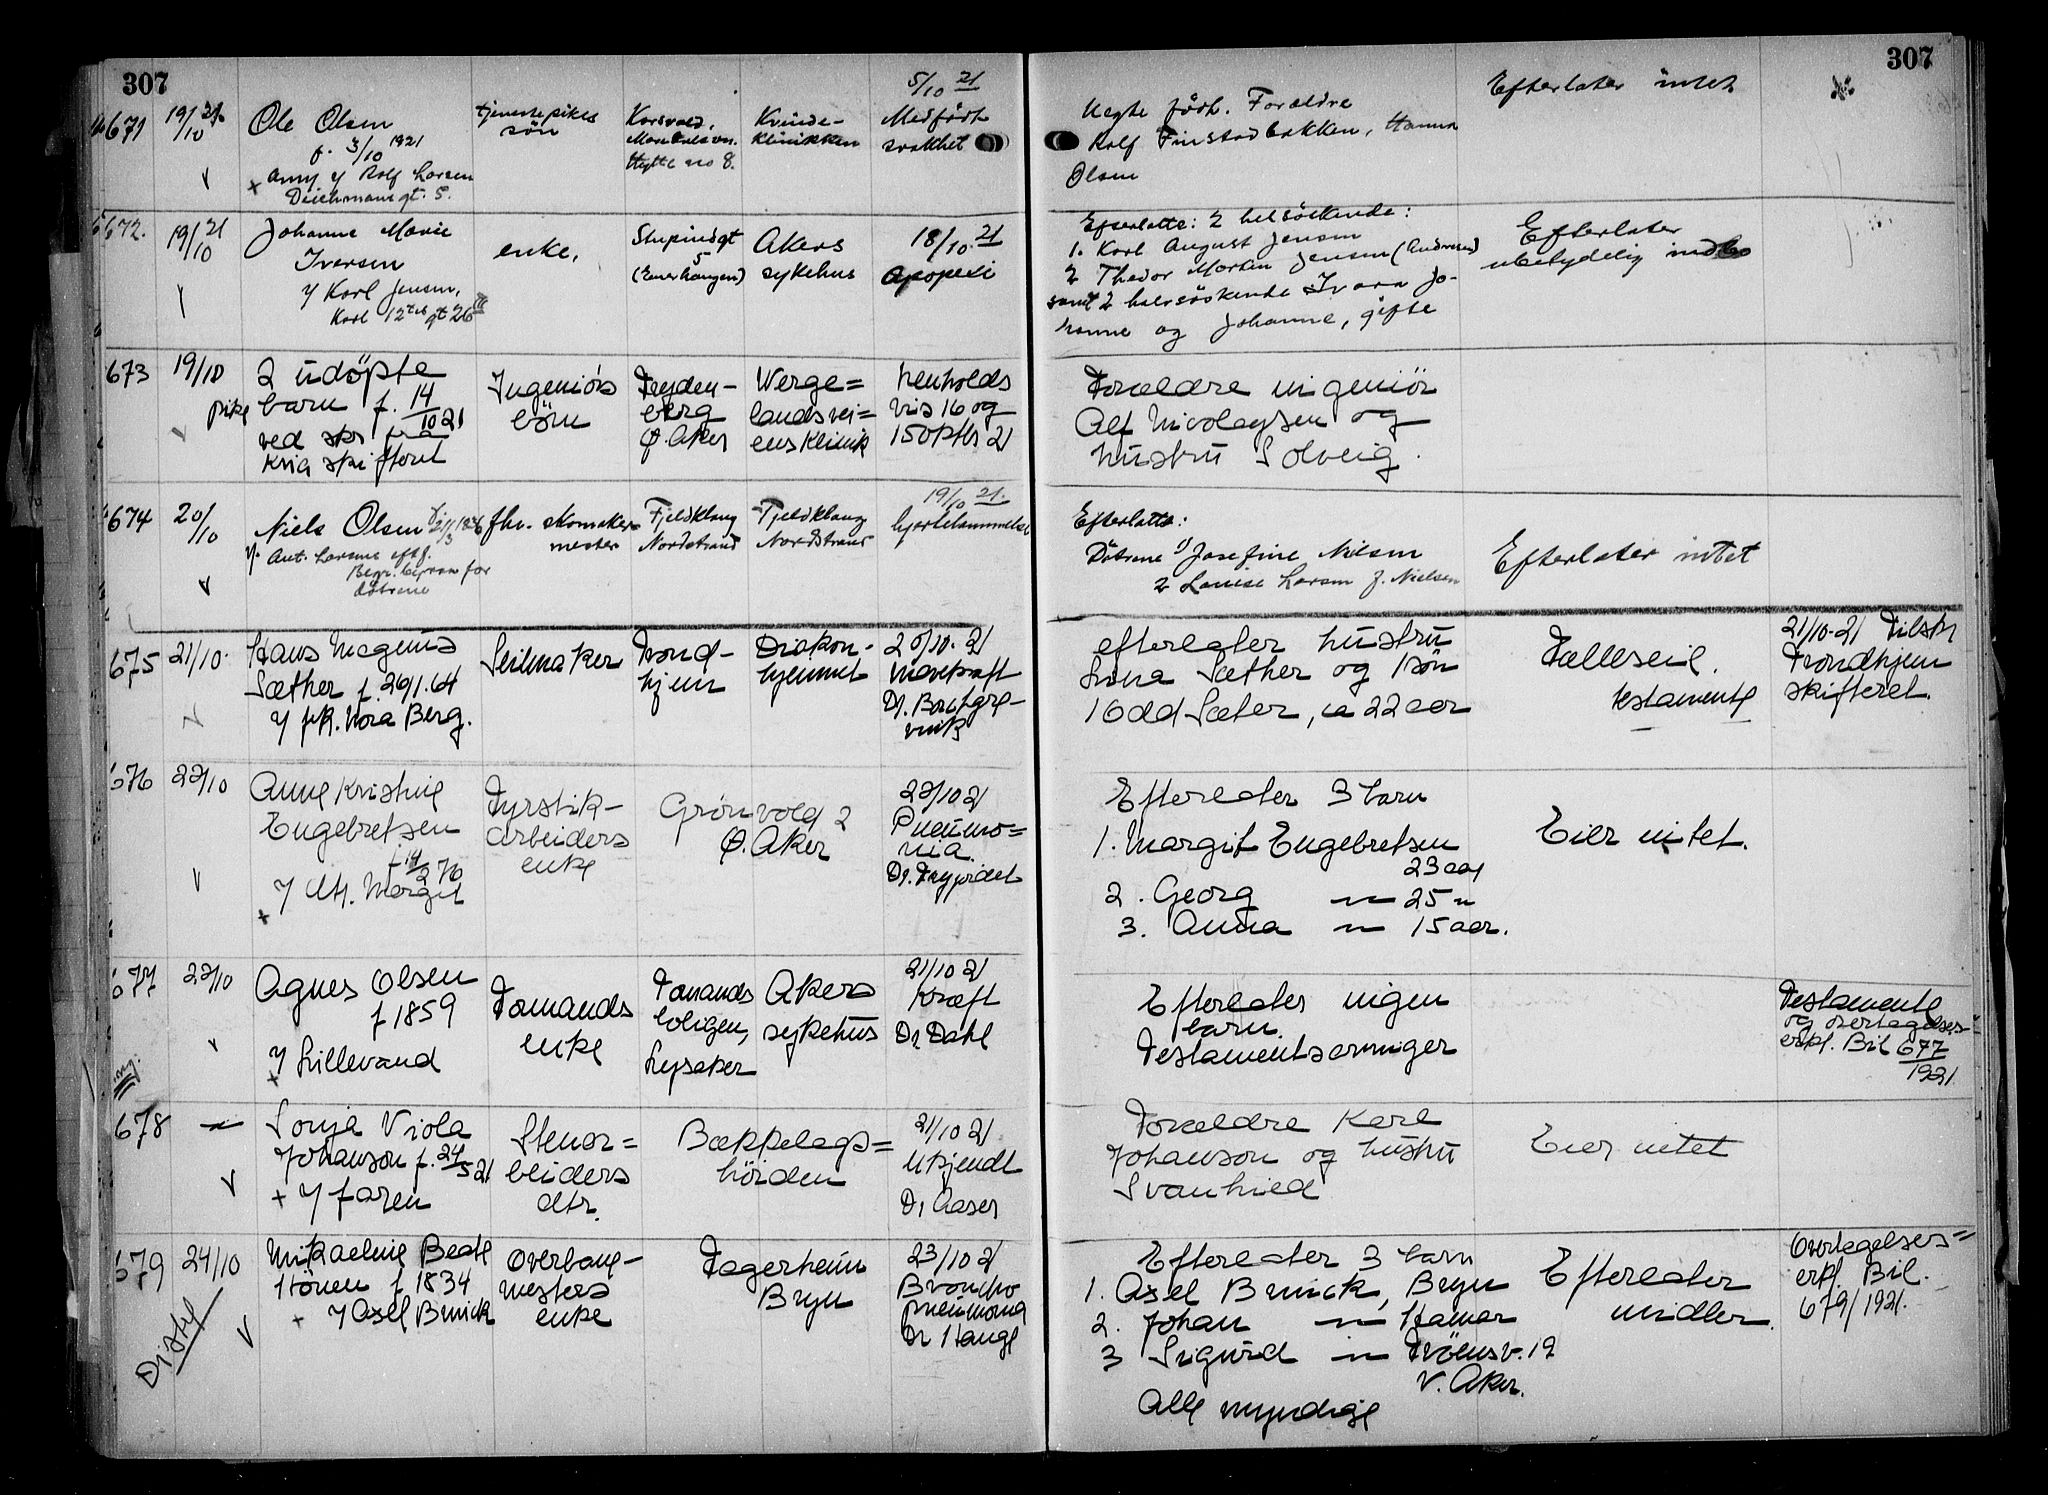 307
307
671
19/10 21
Ole Olsen
f. 3/10 1921
Anm. y Rolf Larsen
Deichmans gt. 5.
tjenestepikes
søn
Korsvold,
Hytte no 8.
Kvinde-
klinikken
5/10 21
Medfødt
svakhet
Uegte født. Forældre
Rolf Finstadbakken, Hanna
Olsen
Efterlater intet
672.
19/10 21
Johanne Marie
Iversen
y Karl Jensen,
Karl 12tes gt 26 III
enke,
Stupindgt
5
(Enerhaugen)
Akers
sykehus
18/10. 21
Apopexi
Efterlatte: 2 helsøskende:
1. Karl August Jensen
2 Thedor Morten Jensen (Andresen)
samt 2 halvsøskende Ivara Jo-
hanne og Johanne, gifte
Efterlater
ubetydelig indbo
673
19/10
2 udöpte
pike barn f. 14/10 21
ved skr fra
Kria skifteret
Ingeniörs
börn
Heyden-
berg
Ø. Aker
Werge=
landsvei=
ens Klinik
henholds
vis 16 og
15 oktbr 21
Forældre ingeniör
Alf Nicolaysen og
hustru Solveig.
674
20/10
Niels Olsen f. 21/3 1836
y. Ant. Larsens eftf.
Begr. byraa for
døtrene
fhv. skomaker-
mester
Fjeldklang
Nordstrand
Fjeldklang
Nordstrand
19/10 21.
hjertelammelse
Efterlatte:
Døtrene 1) Josefine Nilsen
2 Louise Larsen f. Nielsen
Efterlater intet
675
21/10.
Hans Magnus
Sæther f. 26/1. 64
y frk. Nora Berg.
Seilmaker
Trond-
hjem
Diakon-
hjemmet
20/10. 21
Mavekræft
Dr. Borchgre-
vink
efterlater hustru
Lina Sæther og 1 sön
Odd Sæter, ca 22 aar
Fælleseie.
testamente
21/10-21 Tilskr
Trondhjem
skifteret.
676
22/10
Anne Kristine
Engebretsen
f 14/2 76
y dtr. Margit
Fyrstik-
arbeiders
enke
Grönvold 2
Ø. Aker
22/10 21
Pneumo=
nia.
Efterlater 3 barn
1. Margit Engebretsen
23 aar
2. Georg — " — 25 "
3. Anna — " — 15 aar.
Eier intet.
677
22/10
Agnes Olsen
f 1859
y Lillevand
Formands
enke
Formands
boligen,
Lysaker
Akers
sykehus
21/10 21
Kræft
Dr. Dahl
Efterlater ingen
barn.
Testamentsarvinger
Testamente
og overtagelses-
erkl. Bil 677/1921
678
— " —
Sonja Viola
Johanson f. 24/5 21
+ y faren
Stenar=
beiders
dtr.
Bækkelags=
höiden
21/10 21
Ukjendt
Dr Aaser
Forældre Karl
Johanson og hustru
Svanhild
Eier intet
679
24/10
Mikaeline Beate
Hönen f 1834
+ y Axel Bruick
Overbane-
mesters
enke
Fagerheim
Bryn
23/10 21
Broncho
pneumonia
Dr Hauge
Efterlater 3 barn
1. Axel Bruick, Bryn
2. Johan — " — Hamar
3 Sigurd — " — Tröensv. 12
V. Aker.
Alle myndige
Efterlater
midler.
Overtagelses=
erkl. Bil.
679/1921.